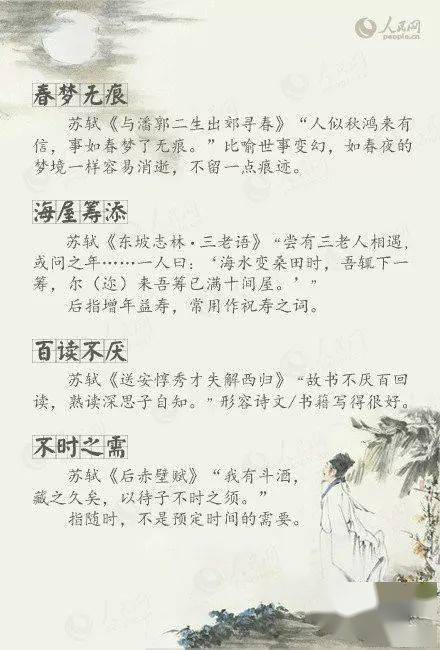 人民网
people.cn
春梦无痕
苏轼《与潘郭二生出郊寻春》“人似秋鸿来有
信，事如春梦了无痕。”比喻世事变幻，如春夜的
梦境一样容易消逝，不留一点痕迹。
海屋筹添
苏轼《东坡志林·三老语》“尝有三老人相遇，
或问之年……一人曰：‘海水变桑田时，吾辄下一
筹，尔（迩）来吾筹已满十间屋。’”
后指增年益寿，常用作祝寿之词。
百读不厌
苏轼《送安惇秀才失解西归》“故书不厌百回
读，熟读深思子自知。”形容诗文/书籍写得很好。
不时之需
苏轼《后赤壁赋》“我有斗酒，
藏之久矣，以待子不时之须。”
指随时，不是预定时间的需要。